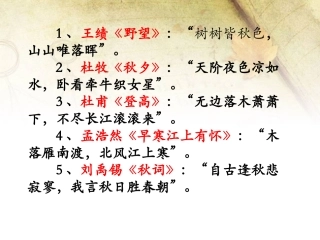 1、王绩《野望》：“树树皆秋色，
山山唯落晖”。
2、杜牧《秋夕》：“天阶夜色凉如
水，卧看牵牛织女星”。
3、杜甫《登高》：“无边落木萧萧
下，不尽长江滚滚来”。
4、孟浩然《早寒江上有怀》：“木
落雁南渡，北风江上寒”。
5、刘禹锡《秋词》：“自古逢秋悲
寂寥，我言秋日胜春朝”。